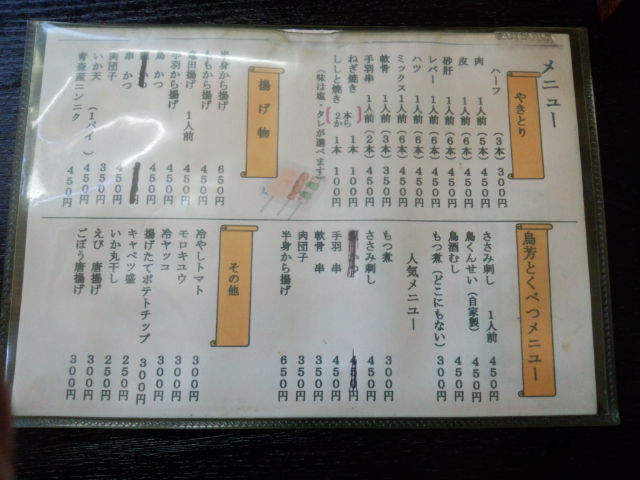 メニュー
やきとり
ハーフ (3本) 300円
肉 1人前 (5本) 450円
皮 1人前 (6本) 450円
砂肝 1人前 (6本) 450円
レバー 1人前 (6本) 450円
ハツ 1人前 (6本) 450円
ミックス 1人前 (6本) 450円
軟骨 1人前 (3本) 350円
手羽串 1人前 (2本) 450円
ねぎ焼き 1本 100円
ししと焼き 1本 100円
2本から
(味は塩・タレが選べます)
揚げ物
半身から揚げ 650円
ももから揚げ 450円
竜田揚げ 1人前 450円
手羽から揚げ 450円
鳥 かつ 450円
串 かつ 450円
肉団子 350円
いか天 (1パイ) 450円
青森産ニンニク 450円
鳥芳とくべつメニュー
ささみ刺し 1人前 450円
鳥くんせい (自家製) 450円
鳥酒むし 450円
もつ煮 (どこにもない) 300円
人気メニュー
もつ煮 300円
ささみ刺し 450円
かつ 450円
手羽 串 450円
軟骨 串 350円
肉団子 350円
半身から揚げ 650円
その他
冷やしトマト 300円
モロキユウ 300円
冷ヤツコ 300円
揚げたてポテトチップ 300円
キャベツ盛 250円
いか丸干し 250円
えび 唐揚げ 300円
ごぼう唐揚げ 300円